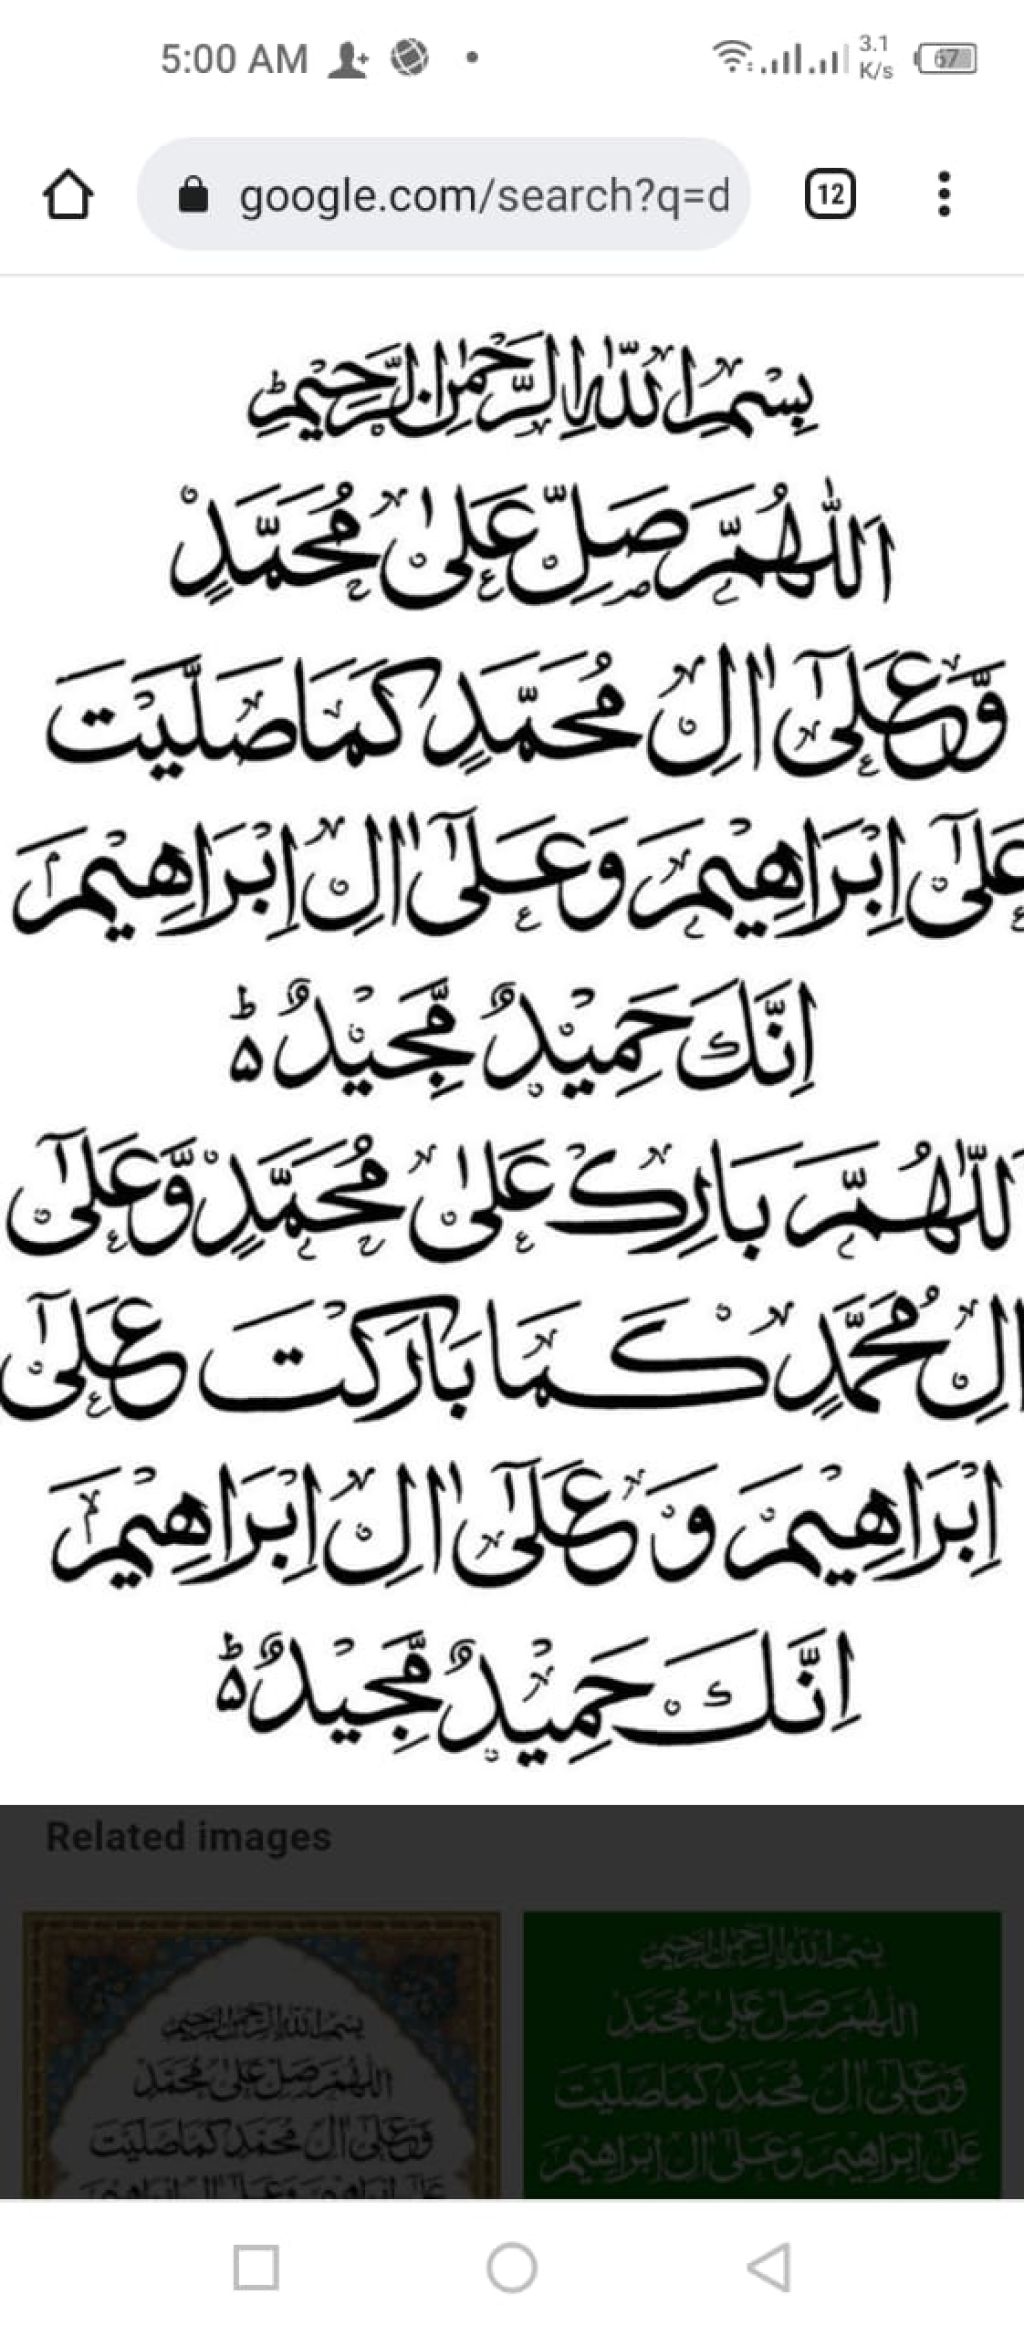 5:00 AM
3.1 K/s
67
google.com/search?q=d
12
بِسْمِ اللّٰهِ الرَّحْمٰنِ الرَّحِيْمِ ؕ
اَللّٰهُمَّ صَلِّ عَلٰى مُحَمَّدٍ
وَّعَلٰٓى اٰلِ مُحَمَّدٍ كَمَا صَلَّيْتَ
عَلٰٓى اِبْرَاهِيْمَ وَعَلٰٓى اٰلِ اِبْرَاهِيْمَ
اِنَّكَ حَمِيْدٌ مَّجِيْدٌ ۵ؕ
للّٰهُمَّ بَارِكْ عَلٰى مُحَمَّدٍ وَّعَلٰٓى
اٰلِ مُحَمَّدٍ كَمَا بَارَكْتَ عَلٰٓى
اِبْرَاهِيْمَ وَ عَلٰٓى اٰلِ اِبْرَاهِيْمَ
اِنَّكَ حَمِيْدٌ مَّجِيْدٌ ۵ؕ
Related images
بسم الله الرحمن الرحيم
اللهم صل على محمد
وعلى ال محمد كما صليت
بسم الله الرحمن الرحيم
اللهم صل على محمد
وعلى ال محمد كما صليت
على ابراهيم وعلى ال ابراهيم